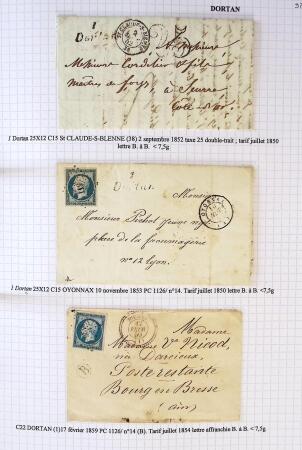 DORTAN
1
Dortan
ST CLAUDE-S-BIENNE
25
Monsieur
Monsieur Cordelier & fils
maîtres de forges,
à Seurre
Côte-d'or
1 Dortan 25X12 C15 St CLAUDE-S-BLENNE (38) 2 septembre 1852 taxe 25 double-trait ; tarif juillet 1850
lettre B. à B. <7,5g
1
Dortan
OYONNAX
Monsieur
Monsieur
place de la
n° 12 Lyon.
1 Dortan 25X12 C15 OYONNAX 10 novembre 1853 PC 1126/ n°14. Tarif juillet 1850 lettre B. à B. <7,5g
Madame
Madame Vve Nicod,
née Darcieux,
Poste restante
Bourg en Bresse
(Ain)
C22 DORTAN (1)17 février 1859 PC 1126/ n°14 (B). Tarif juillet 1854 lettre affranchie B. à B. <7,5g